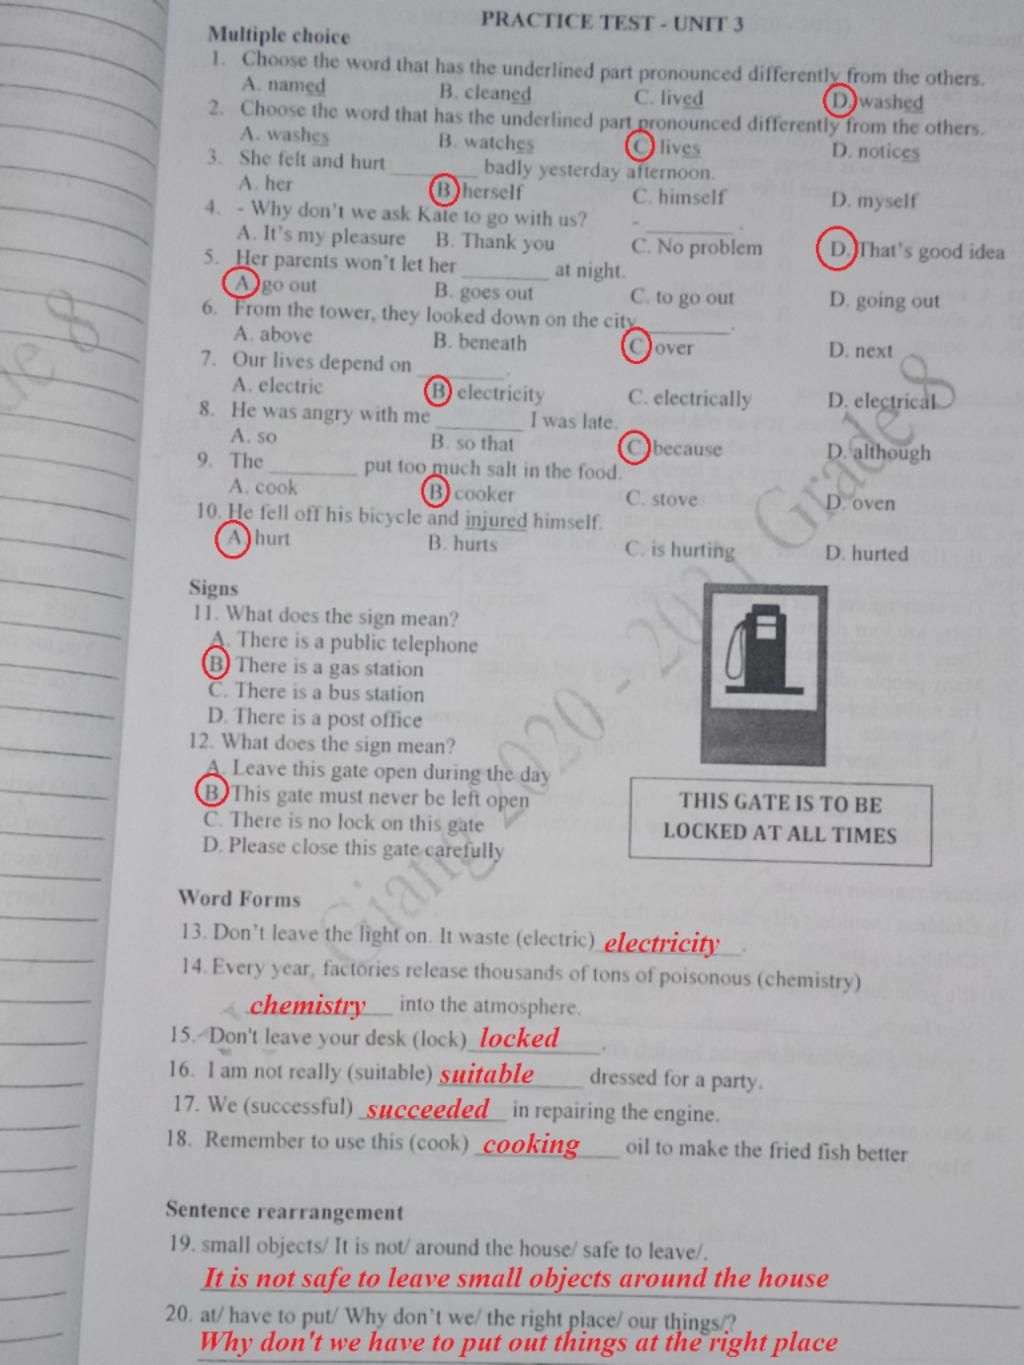 PRACTICE TEST - UNIT 3
Multiple choice
1. Choose the word that has the underlined part pronounced differently from the others.
A. named B. cleaned C. lived D. washed
2. Choose the word that has the underlined part pronounced differently from the others.
A. washes B. watches C. lives D. notices
3. She felt and hurt ________ badly yesterday afternoon.
A. her B. herself C. himself D. myself
4. - Why don't we ask Kate to go with us? - ________.
A. It's my pleasure B. Thank you C. No problem D. That's good idea
5. Her parents won't let her ________ at night.
A. go out B. goes out C. to go out D. going out
6. From the tower, they looked down on the city ________.
A. above B. beneath C. over D. next
7. Our lives depend on ________.
A. electric B. electricity C. electrically D. electrical
8. He was angry with me ________ I was late.
A. so B. so that C. because D. although
9. The ________ put too much salt in the food.
A. cook B. cooker C. stove D. oven
10. He fell off his bicycle and injured himself.
A. hurt B. hurts C. is hurting D. hurted
Signs
11. What does the sign mean?
A. There is a public telephone
B. There is a gas station
C. There is a bus station
D. There is a post office
12. What does the sign mean?
A. Leave this gate open during the day
B. This gate must never be left open
C. There is no lock on this gate
D. Please close this gate carefully
THIS GATE IS TO BE
LOCKED AT ALL TIMES
Word Forms
13. Don't leave the light on. It waste (electric) electricity.
14. Every year, factories release thousands of tons of poisonous (chemistry)
chemistry into the atmosphere.
15. Don't leave your desk (lock) locked.
16. I am not really (suitable) suitable dressed for a party.
17. We (successful) succeeded in repairing the engine.
18. Remember to use this (cook) cooking oil to make the fried fish better
Sentence rearrangement
19. small objects/ It is not/ around the house/ safe to leave/.
It is not safe to leave small objects around the house
20. at/ have to put/ Why don't we/ the right place/ our things/?
Why don't we have to put out things at the right place
Giang 2020 - 2021 Grade 8
de 8